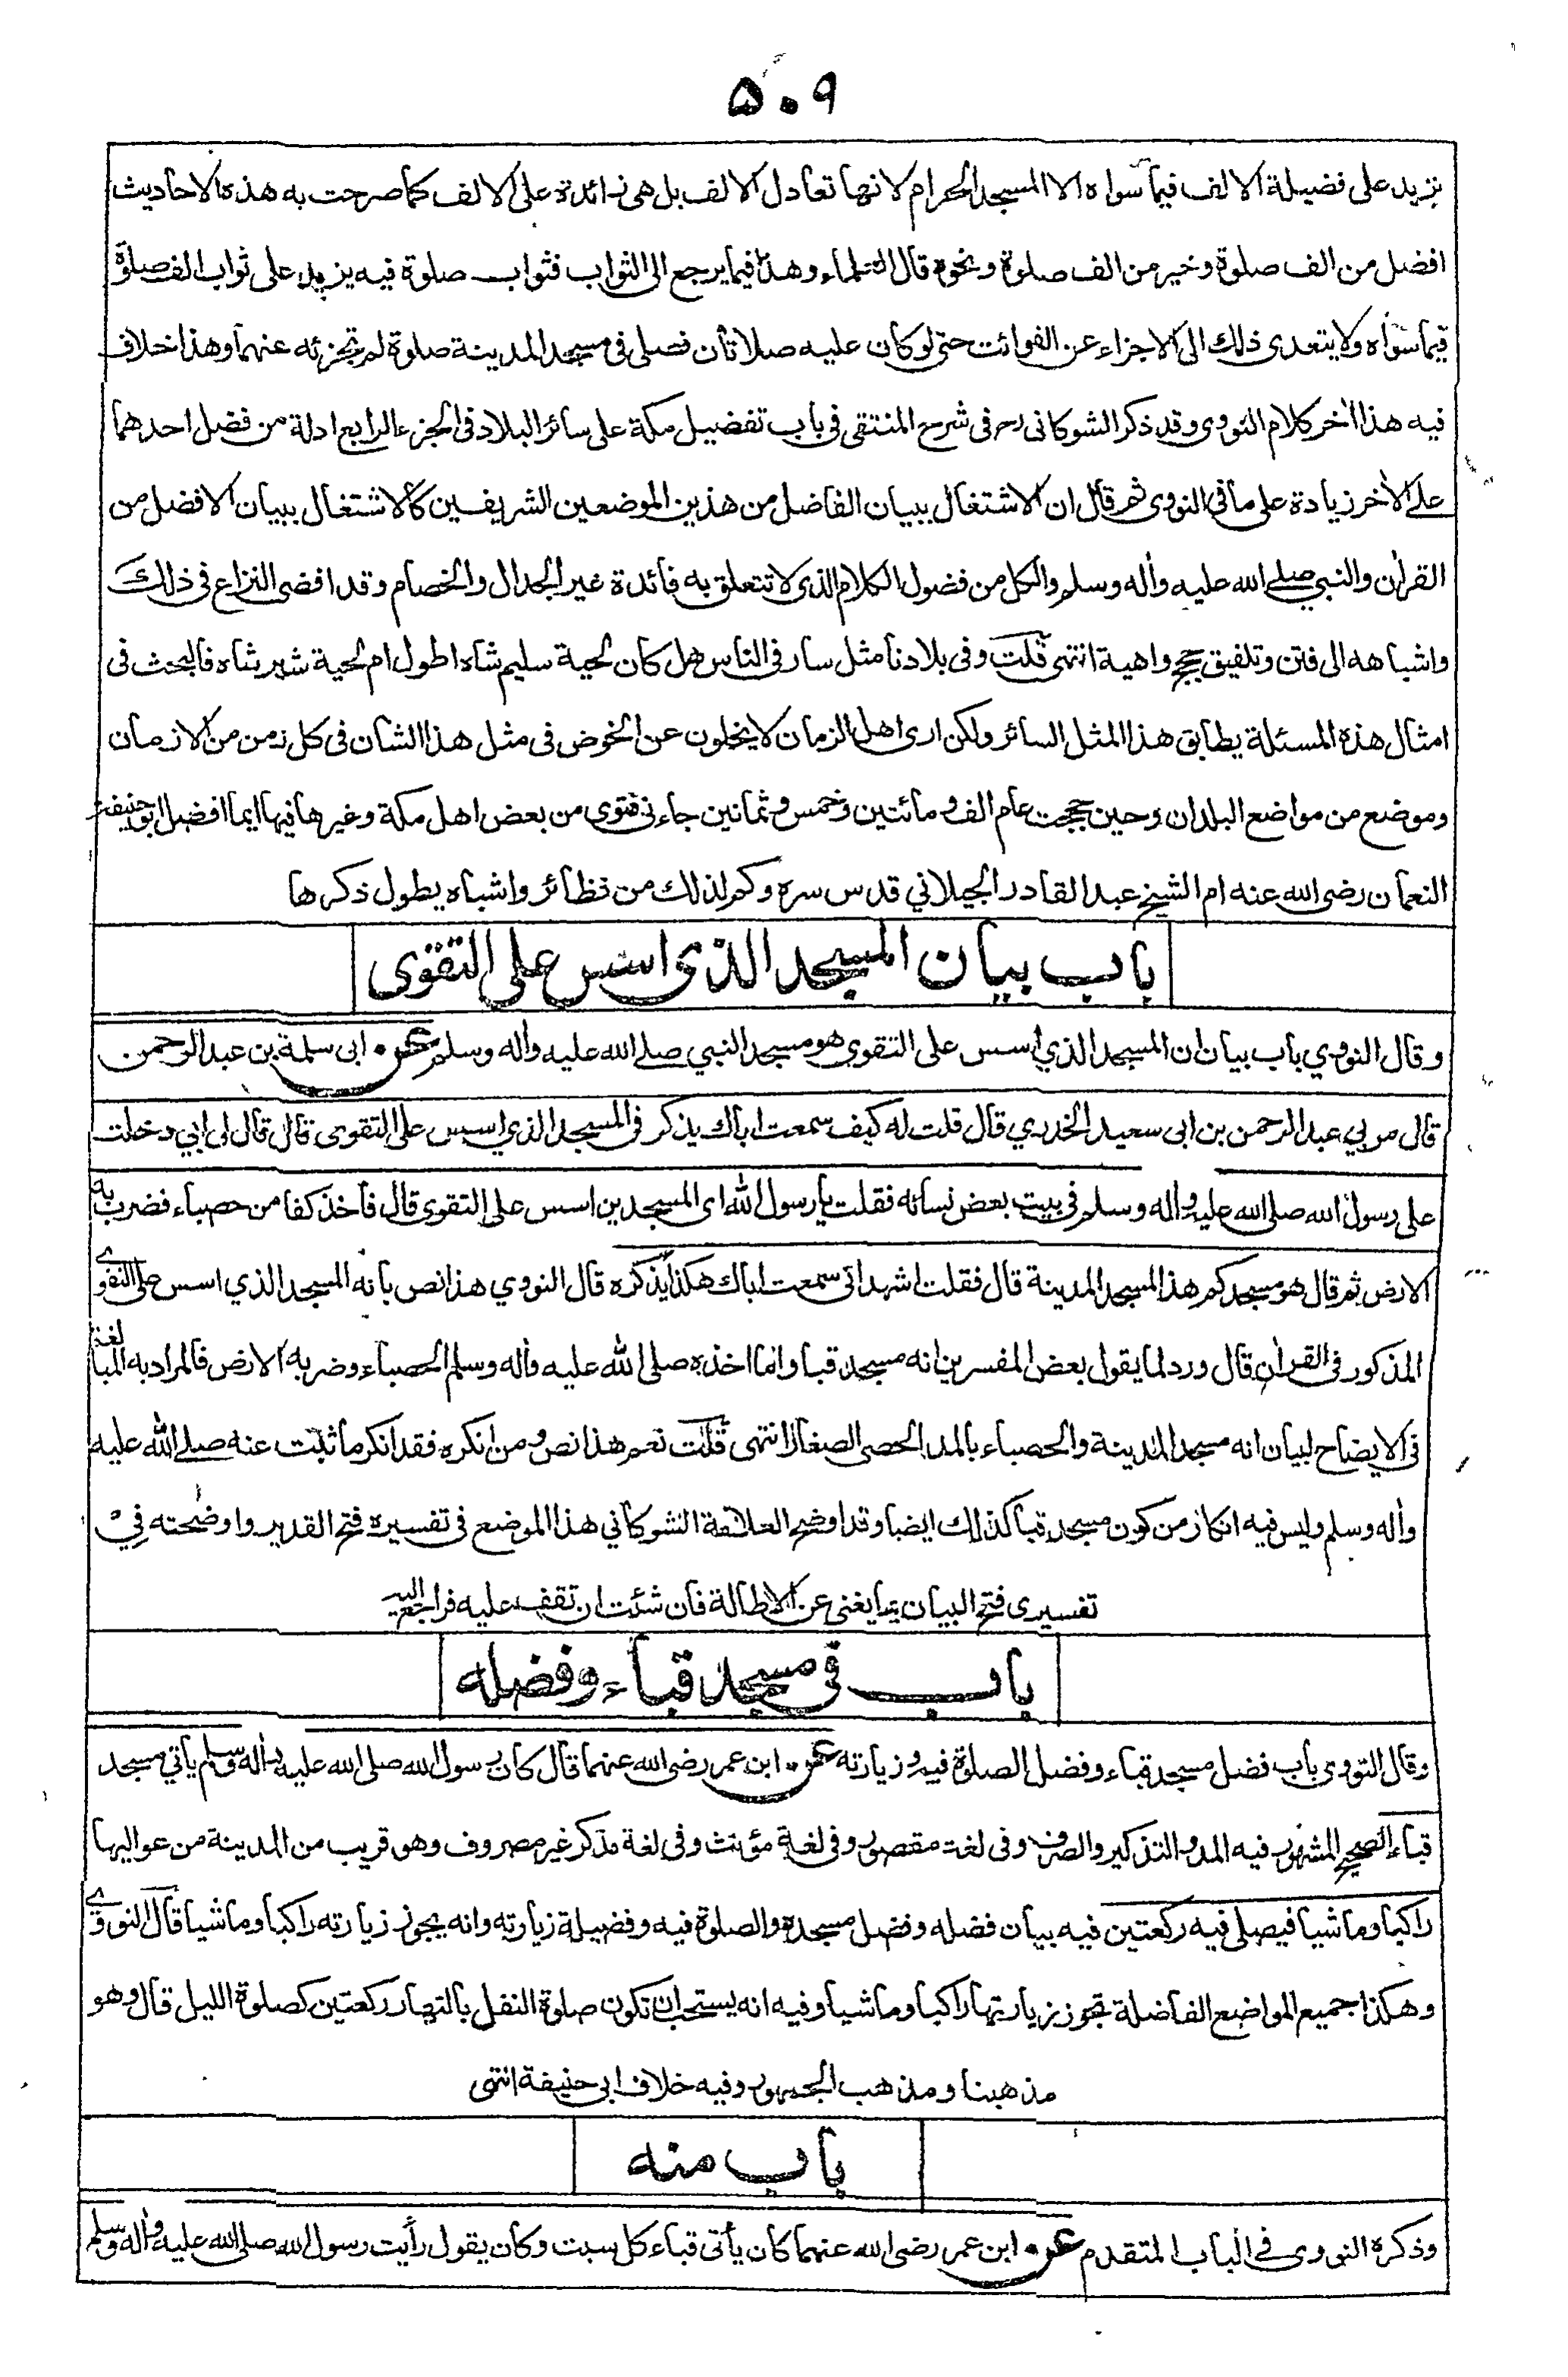 ۵۰۹
يزيد على فضيلة الالف فيما سواه الا المسجد الحرام لانها تعادل الالف بل هي زائدة على الالف كما صرحت به هذه الاحاديث
افضل من الف صلوة وخير من الف صلوة ونحوه قال العلماء وهذا فيما يرجع الى الثواب فثواب صلوة فيه يزيد على ثواب الف صلوة
فيما سواه ولا يتعدى ذلك الى الاجزاء عن الفوائت حتى لو كان عليه صلاتان فصلى في مسجد المدينة صلوة لم تجزئه عنهما وهذا خلاف
فيه هذا اٰخر كلام النووى وقد ذكر الشوكانى رح فى شرح المنتقى فى باب تفضيل مكة على سائر البلاد فى الجزء الرابع ادلة من فضل احدهما
على الاٰخر زيادة على ما فى النووى ثم قال ان الاشتغال ببيان الفاضل من هذين الموضعين الشريفين كالاشتغال ببيان الافضل من
القراٰن والنبي صلے الله عليه واٰله وسلم والكل من فضول الكلام الذى لا تتعلق به فائدة غير الجدال والخصام وقد افضى النزاع فى ذلك
واشباهه الى فتن وتلفيق حجج واهية انتهى قلت وفى بلادنا مثل سار فى الناس هل كان لحية سليم شاه اطول ام لحية شير شاه فالبحث فى
امثال هذه المسئلة يطابق هذا المثل السائر ولكن ارى اهل الزمان لا يخلون عن الخوض فى مثل هذا الشان فى كل زمن من الازمان
وموضع من مواضع البلدان وحين حججت عام الف ومائتين وخمس وثمانين جاءنى فتوى من بعض اهل مكة وغيرها فيها ايما افضل ابو حنيفة
النعمان رضى الله عنه ام الشيخ عبد القادر الجيلاني قدس سره وكم لذلك من نظائر واشباه يطول ذكرها
باب بيان المسجد الذى اسس على التقوى
وقال النووي باب بيان ان المسجد الذي اسس على التقوى هو مسجد النبي صلے الله عليه واٰله وسلم عن ابى سلمة بن عبد الرحمن
قال مر بي عبد الرحمن بن ابى سعيد الخدري قال قلت له كيف سمعت اباك يذكر فى المسجد الذي اسس على التقوى قال قال لى ابي دخلت
على رسول الله صلى الله عليه واٰله وسلم فى بيت بعض نسائه فقلت يا رسول الله اى المسجدين اسس على التقوى قال فاخذ كفا من حصباء فضرب به
الارض ثم قال هو مسجدكم هذا المسجد المدينة قال فقلت اشهد انى سمعت اباك هكذا يذكره قال النووي هذا نص بانه المسجد الذي اسس على التقوے
المذكور فى القراٰن قال ورد لما يقول بعض المفسرين انه مسجد قبا واما اخذه صلى الله عليه واٰله وسلم الحصباء وضربه الارض فالمراد به المبالغة
فى الايضاح لبيان انه مسجد المدينة والحصباء بالمد الحصى الصغار انتهى قلت نعم هذا نص ومن انكره فقد انكر ما ثبت عنه صلے الله عليه
واٰله وسلم وليس فيه انكار من كون مسجد قبا كذلك ايضا وقد اوضح العلامة الشوكاني هذا الموضع فى تفسيره فتح القدير واوضحته فى
تفسيرى فتح البيان بما يغنى عن الاطالة فان شئت ان تقف عليه فراجع اليه
باب فى مسجد قباء وفضله
وقال النووى باب فضل مسجد قباء وفضل الصلوة فيه وزيارته عن ابن عمر رضى الله عنهما قال كان رسول الله صلى الله عليه واٰله وسلم ياتي مسجد
قباء الصحيح المشهور فيه المد والتذكير والصرف وفى لغة مقصور وفى لغة مؤنث وفى لغة مذكر غير مصروف وهو قريب من المدينة من عواليها
راكبا وماشيا فيصلى فيه ركعتين فيه بيان فضله وفضل مسجده والصلوة فيه وفضيلة زيارته وانه يجوز زيارته راكبا وماشيا قال النووے
وهكذا جميع المواضع الفاضلة تجوز زيارتها راكبا وماشيا وفيه انه يستحب ان تكون صلوة النفل بالنهار ركعتين كصلوة الليل قال وهو
مذهبنا ومذهب الجمهور وفيه خلاف ابى حنيفة انتهى
باب منه
وذكره النووى فى الباب المتقدم عن ابن عمر رضى الله عنهما كان يأتى قباء كل سبت وكان يقول رأيت رسول الله صلى الله عليه واٰله وسلم